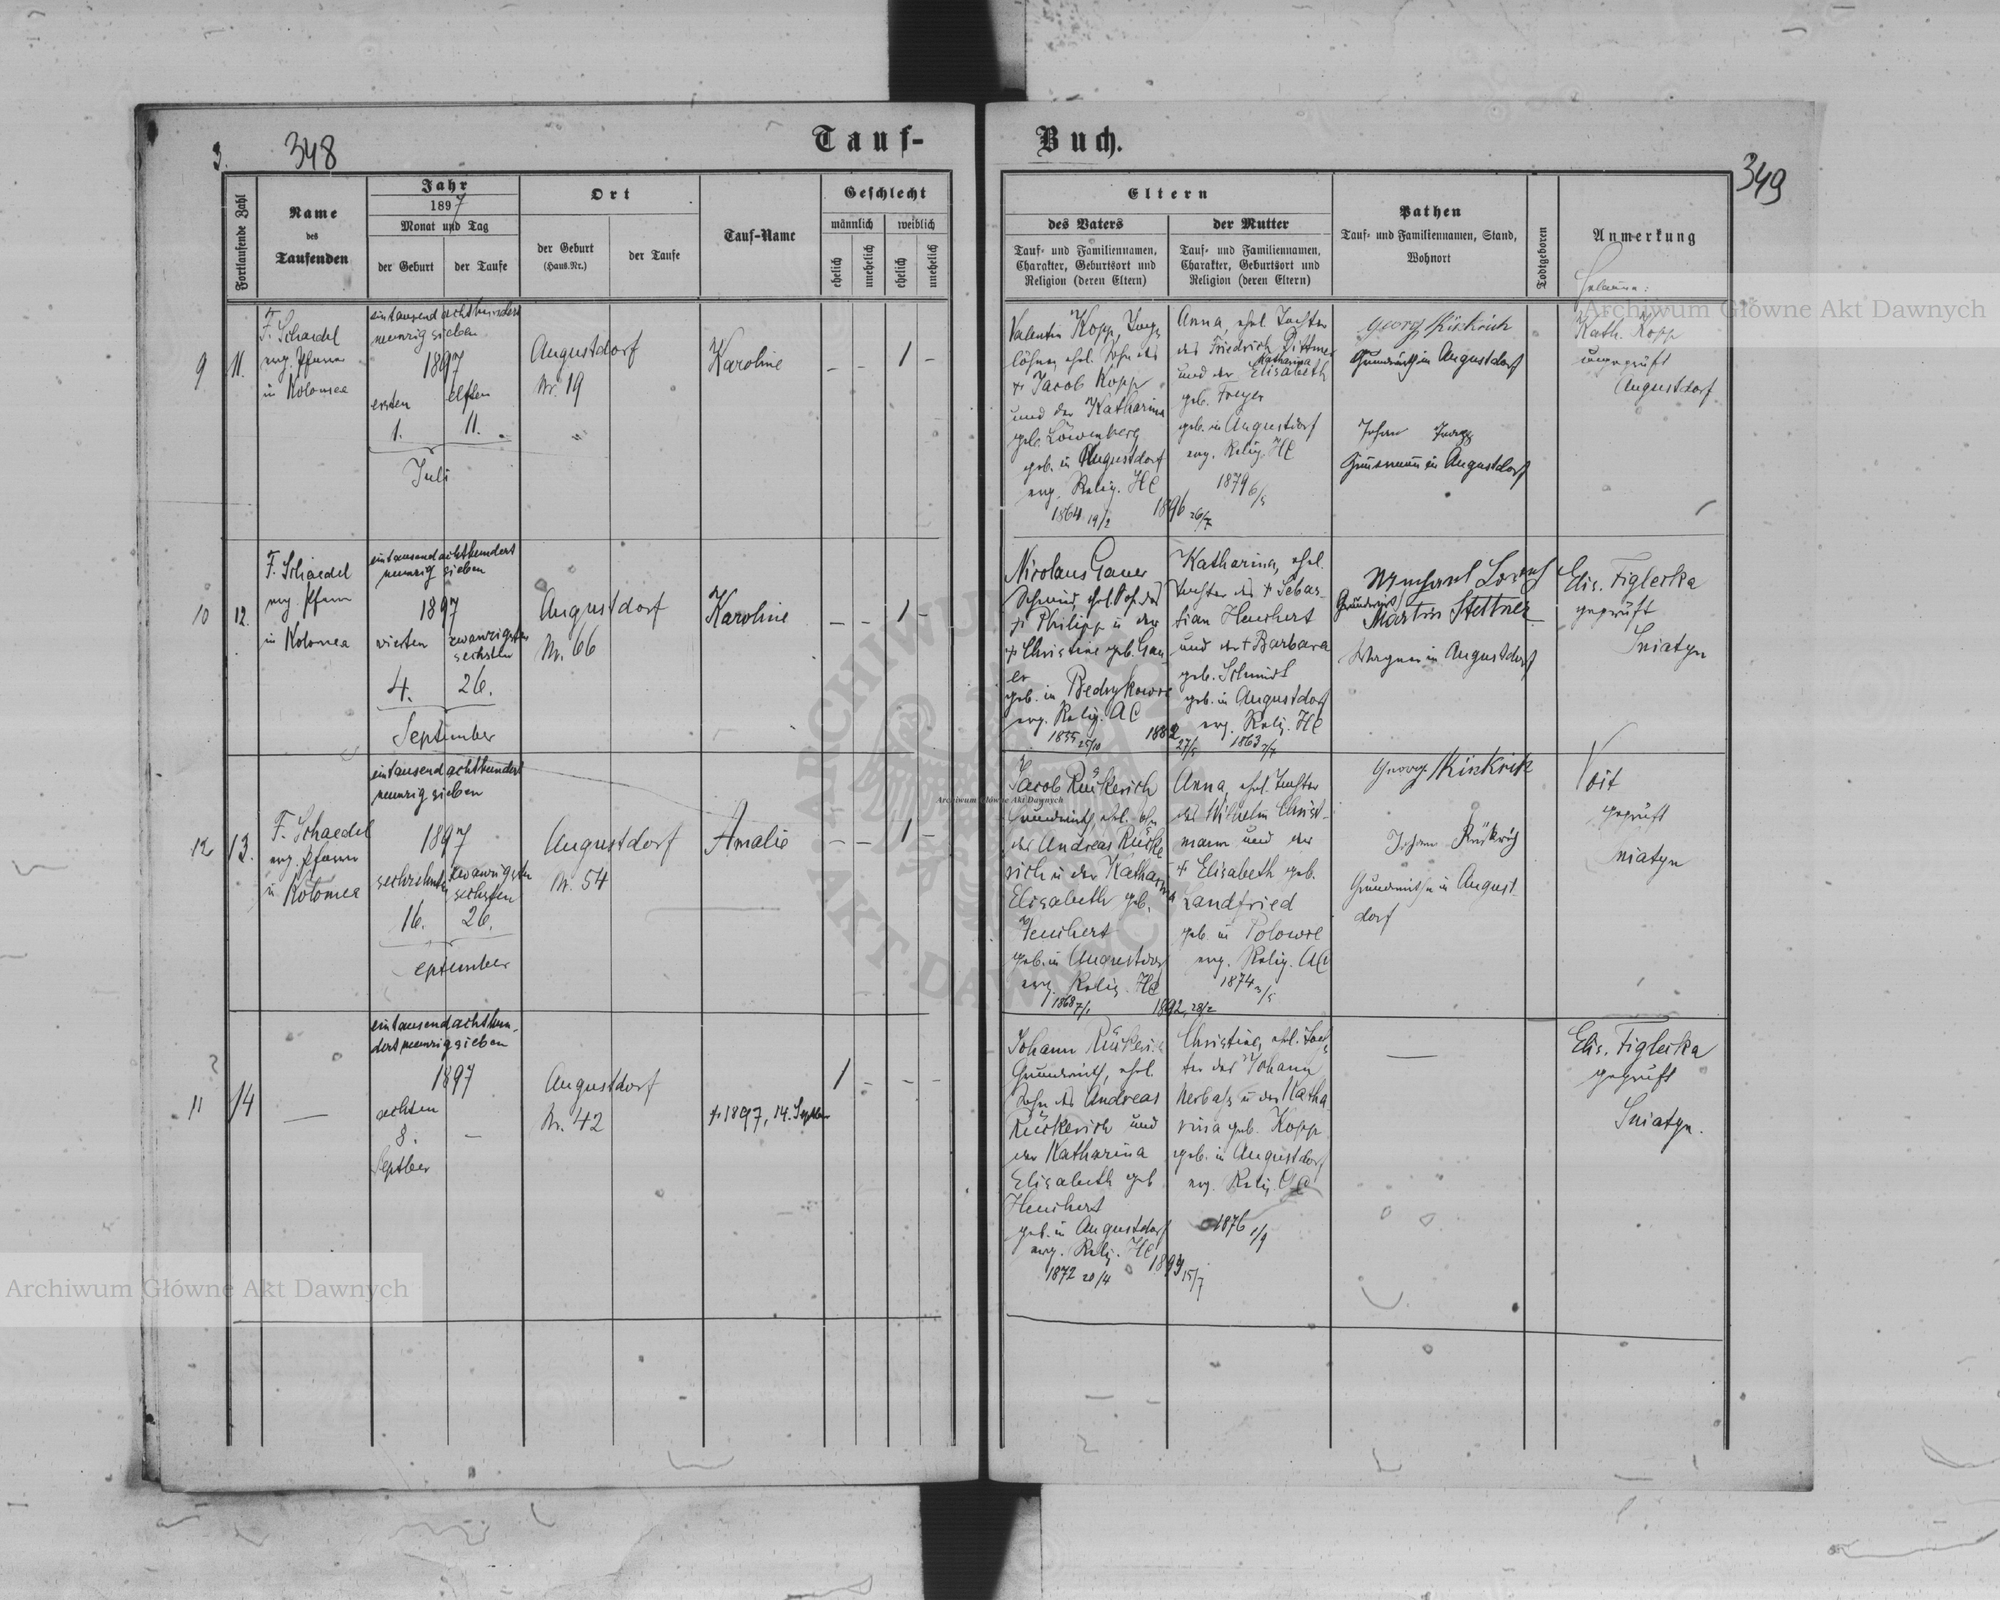 3.
348
Tauf-
Buch.
349
Fortlaufende Zahl
Name
des
Taufenden
Jahr
1897
Monat und Tag
der Geburt
der Taufe
Ort
der Geburt
(Haus-Nr.)
der Taufe
Tauf-Name
Geschlecht
männlich
weiblich
ehelich
unehelich
ehelich
unehelich
Eltern
des Vaters
Tauf- und Familiennamen,
Charakter, Geburtsort und
Religion (deren Eltern)
der Mutter
Tauf- und Familiennamen,
Charakter, Geburtsort und
Religion (deren Eltern)
Pathen
Tauf- und Familiennamen, Stand,
Wohnort
Todtgeboren
Anmerkung
9
11.
F. Schaedel
evg. Pfarrer
in Kolomea
eintausend achthundert
neunzig sieben
1897
ersten
elften
1.
11.
Juli
Augustdorf
Nr. 19
Karoline
– – 1 –
Valentin Kopp, Tag-
löhner, ehel. Sohn des
+ Jacob Kopp
und der Katharina
geb. Löwenberg
geb. in Augustdorf
evg. Relig. HC
1864 19/2
1896 26/7
Anna, ehel. Tochter
des Friedrich Dittmer
und der Katharina Elisabeth
geb. Freyer
geb. in Augustdorf
evg. Relig. HC
1879 6/5
Georg
in Augustdorf
Johan
in Augustdorf
Hebamme:
Kath. Kopp
ungeprüft
Augustdorf
10
12.
F. Schaedel
evg. Pfarr
in Kolomea
eintausend achthundert
neunzig sieben
1897
vierten
zwanzigsten
sechsten
4.
26.
September
Augustdorf
Nr. 66
Karoline
– – 1 –
Nicolaus Gauer
Schmied, ehel. S. des
+ Philipp u. der
+ Christine geb. Gau
er
geb. in
evg. Relig. AC
1855 25/10
1882 27/5
Katharina, ehel.
Tochter des + Sebas-
tian Heuchert
und der + Barbara
geb. Schmidt
geb. in Augustdorf
evg. Relig. HC
1863 7/7
Grundwirt
Martin Stettner
Wagner in Augustdorf
Elis. Figlerka
geprüft
Sniatyn
12
13.
F. Schaedel
evg. Pfarrer
in Kolomea
eintausend achthundert
neunzig sieben
1897
sechzehnten
zwanzigsten
sechsten
16.
26.
September
Augustdorf
Nr. 54
Amalie
– – 1 –
Jacob Rückerich
Grundwirth, ehel. Sohn
des Andreas Rücke
rich u. der Katharina
Elisabeth geb.
Heuchert
geb. in Augustdorf
evg. Relig. HC
1868 7/1
1892, 28/2
Anna, ehel. Tochter
des Wilhelm Christ-
mann und der
+ Elisabeth geb.
Landfried
geb. in Polowce
evg. Relig. AC
1874 3/5
Georg
Johann Rückrich
Grundwirthe in August-
dorf
Voit
geprüft
Sniatyn
11
14
—
eintausend achthun-
dert neunzig sieben
1897
achten
8.
–
Septber
Augustdorf
Nr. 42
+ 1897, 14. Septber
1 – – –
Johann Rückerich
Grundwirth, ehel.
Sohn des Andreas
Rückerich und
der Katharina
Elisabeth geb
Heuchert
geb. in Augustdorf
evg. Relig. HC
1872 20/4
15/7
Christine, ehel. Toch
ter des Johann
u. der Katha
rina geb. Kopp
geb. in Augustdorf
evg. Relig. AC
1876 1/9
—
Elis. Figlerka
geprüft
Sniatyn.
Archiwum Główne Akt Dawnych
Archiwum Główne Akt Dawnych
Archiwum Główne Akt Dawnych
ARCHIWUM GŁÓWNE AKT DAWNYCH